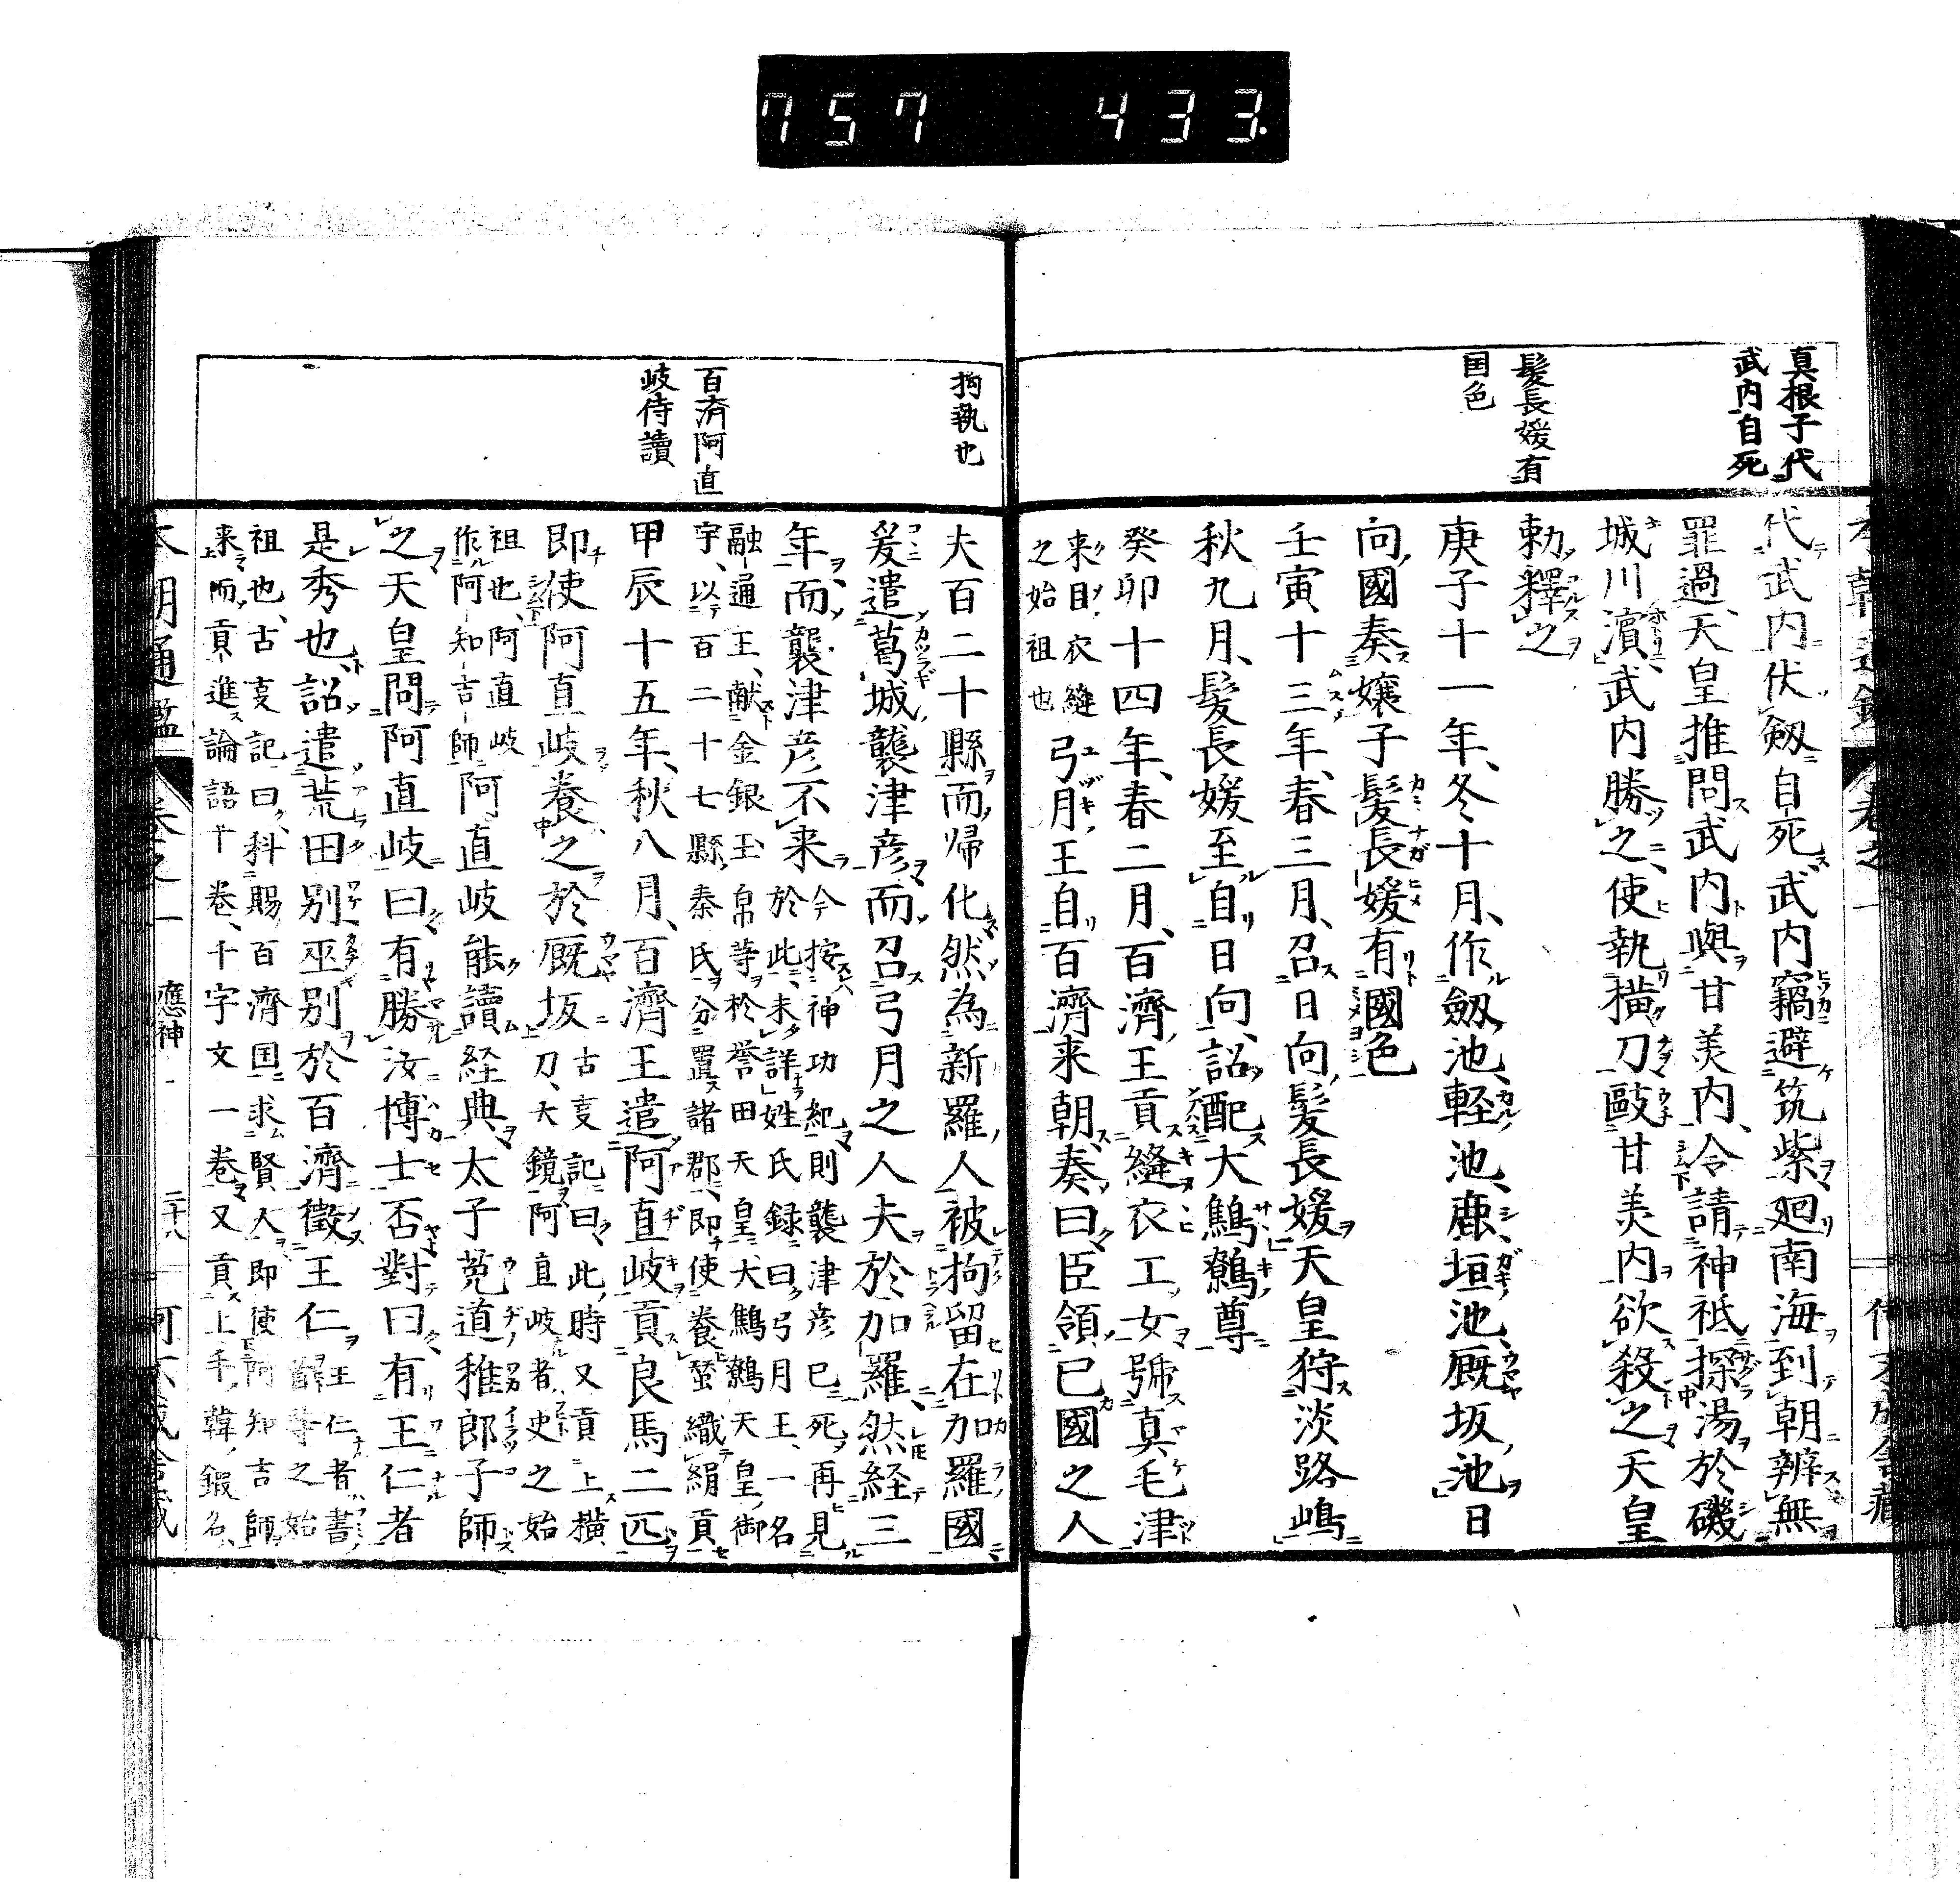 757 433.
真根子代
武内自死
髪長媛有
国色
代武内伏劔自死武内竊避筑紫廻南海到朝辨無
罪過天皇推問武内與甘美内令請神祇探湯於磯
城川濵武内勝之使執横刀毆甘美内欲殺之天皇
勅釋之
庚子十一年冬十月作劔池軽池鹿垣池厩坂池日
向國奏嬢子髪長媛有國色
壬寅十三年春三月召日向髪長媛天皇狩淡路嶋
秋九月髪長媛至自日向詔配大鷦鷯尊
癸卯十四年春二月百濟王貢縫衣工女號真毛津
来目衣縫
之始祖也
弓月王自百濟来朝奏曰臣領已國之人
拘執也
百済阿直
岐侍讀
夫百二十縣而帰化然為新羅人被拘留在加羅國
爰遣葛城襲津彦而召弓月之人夫於加羅然経三
年而襲津彦不来
今按神功紀則襲津彦已死再見
於此未詳姓氏録曰弓月王一名
融通王献金銀玉帛等於誉田天皇大鷦鷯天皇御
宇以百二十七縣秦氏分置諸郡即使養蚕織絹貢
甲辰十五年秋八月百濟王遣阿直岐貢良馬二匹
即使阿直岐養之於厩坂
古叓記曰此時又貢上横
刀大鏡阿直岐者史之始
祖也阿直岐
作阿知吉師
阿直岐能讀経典太子菟道稚郎子師
之天皇問阿直岐曰有勝汝博士否對曰有王仁者
是秀也詔遣荒田別巫別於百濟徴王仁
王仁者書
等之始
祖也古叓記曰科賜百濟国求賢人即使阿知吉師
来而貢進論語十卷千字文一卷又貢上手韓鍜名
本朝通鑑 卷之一 應神 二十八